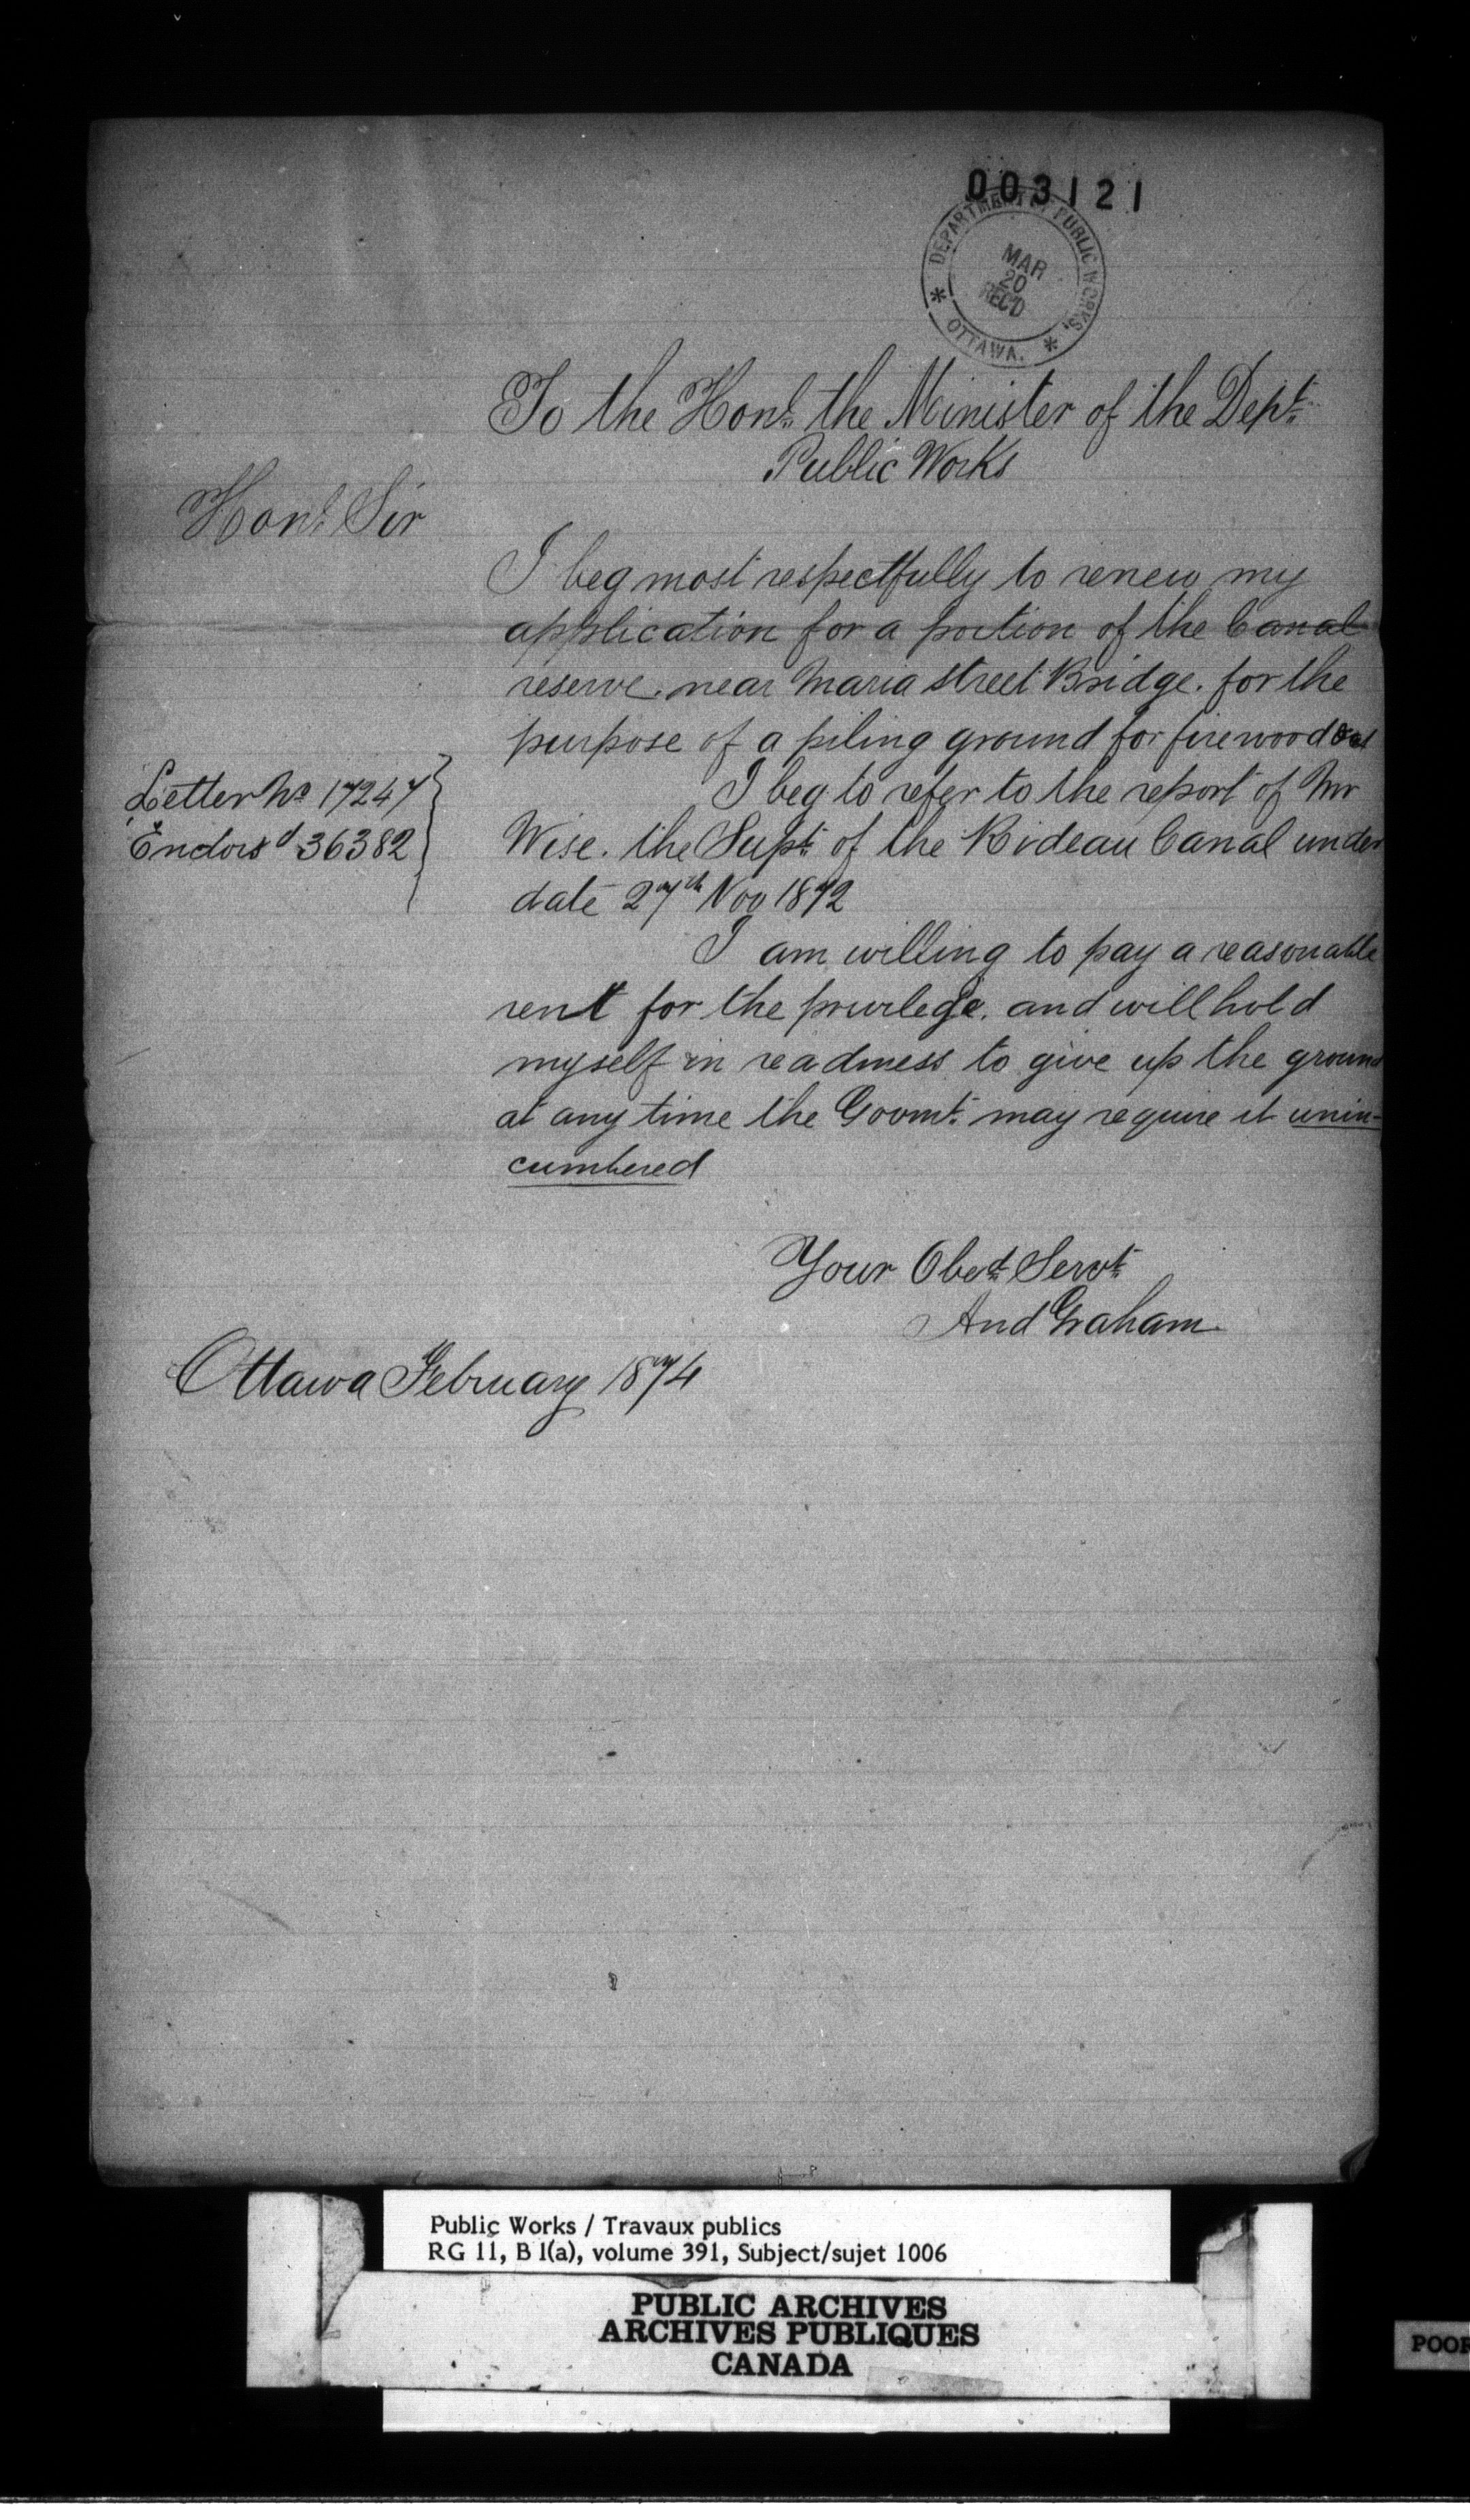 003121
DEPARTMENT OF PUBLIC WORKS.
MAR
20
REC'D
* OTTAWA. *
To the Honl. the Minister of the Dept.
Public Works
Honl. Sir
I beg most respectfully to renew my
application for a portion of the Canal
reserve. near Maria street Bridge. for the
purpose of a piling ground for firewood
I beg to refer to the report of Mr
Letter No 17247
Endorsd 36382
Wise. the Supt. of the Rideau Canal under
date 27th Nov 1872
I am willing to pay a reasonable
rent for the privilege. and will hold
myself in readiness to give up the ground
at any time the Govmt. may require it unin-
cumbered
Your Obedt. Servt.
And Graham
Ottawa February 1874
Public Works / Travaux publics
RG 11, B 1(a), volume 391, Subject/sujet 1006
PUBLIC ARCHIVES
ARCHIVES PUBLIQUES
CANADA
POOR